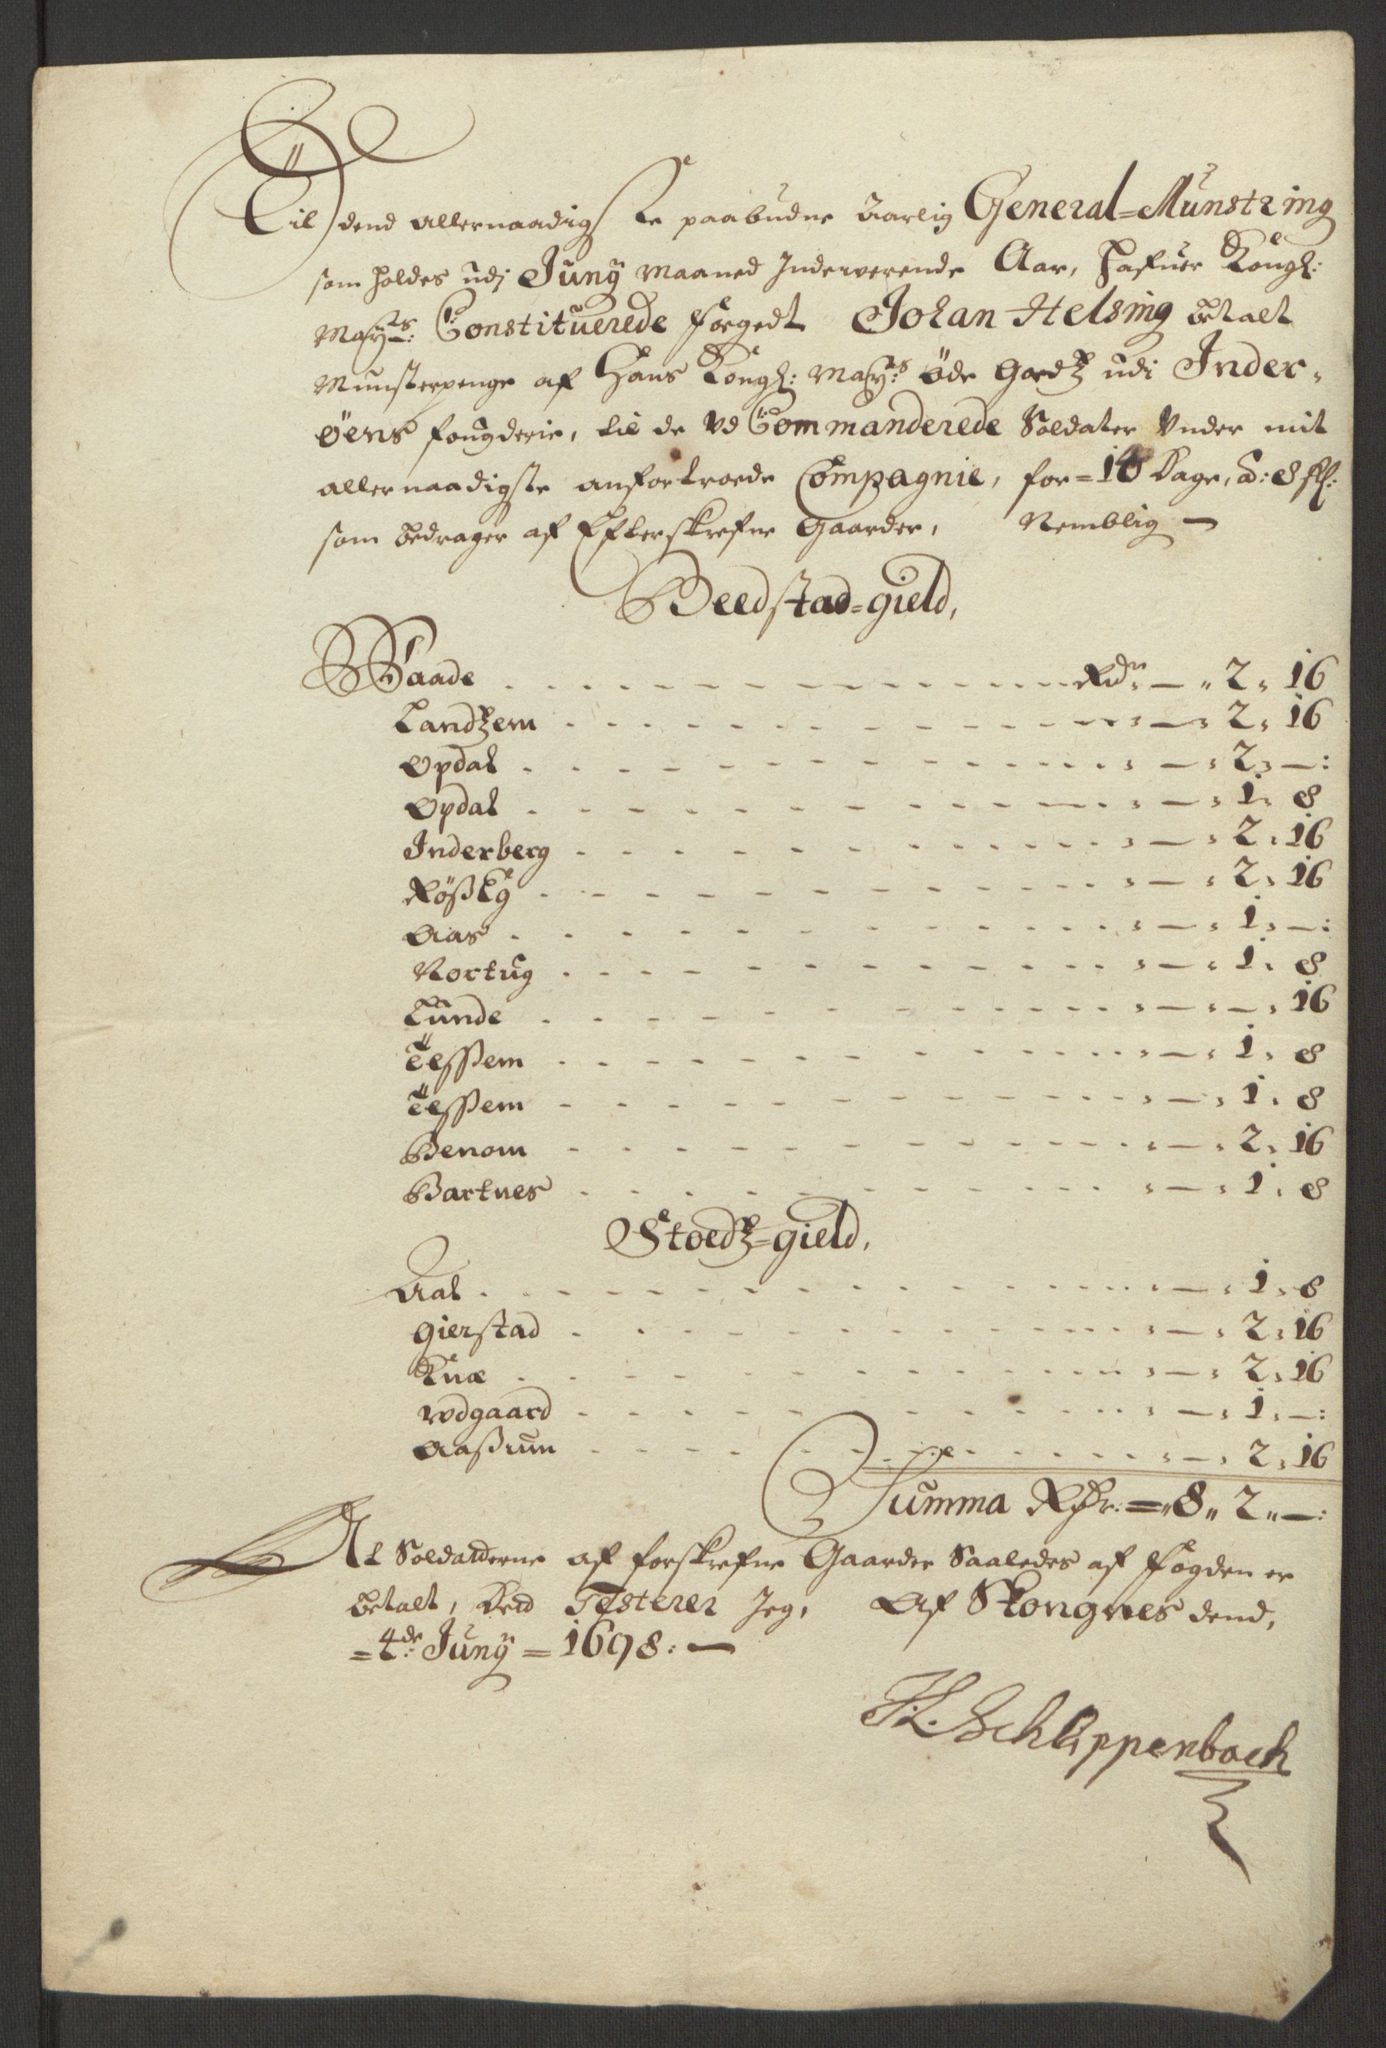 Til dend allernaadigste paabudne Aarlig General=Munstring
som holdes udj Junÿ Maaned Inderwerende Aar, hafuer Kongl:
Mayts: Constituerede fogedt Johan Helsing betalt
Munsterpenge af Hans Kongl: Mayts: Öde Goedtz udi Inder-
öens fougderie, til de Vd Commanderede Soldater Under mit
allernaadigste anfortroede Compagnie, for=10 Dage, a: 8 sk:
som bedrager af Efterskrefne Gaarder, Nemblig —
Beedstad=gield,
Waade Rdr — 2 16
Landtzem — 2 16
Opdal — 2 —:
Opdal — 1 8
Inderberg — 2 16
Rößeg — 2 16
Aas — 1 —:
Nortug — 1 8
Lunde — — 16
Telßem — 1 8
Telßem — 1 8
Benom — 2 16
Bartnes — 1 8
Stoedtz=gield,
Aal — 1 8
Gierstad — 2 16
Knæ — 2 16
Wdgaard — 1 —:
Aaßum — 2 16
Summa Rdr: = 8 2 —:
At Soldatterne af forskrefne Gaarder Saaledes af Fogden er
betalt, Det Testerer Jeg, Af Skongnes dend,
=4de: Junÿ = 1698: —
Schlippenbach